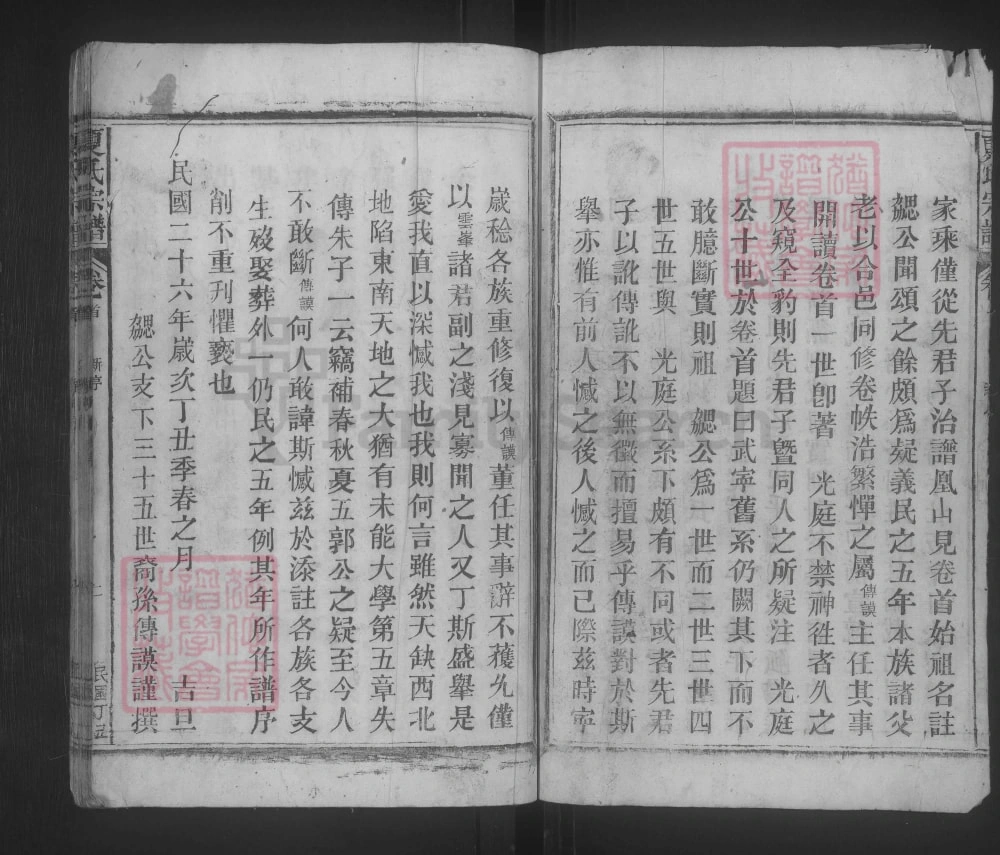 家乘僅從先君子治譜凰山見卷首始祖名註
勰公聞頌之餘頗爲疑義民之五年本族諸父
老以合邑同修卷帙浩繁憚之屬傳謨主任其事
開讀卷首一世卽著 光庭不禁神徃者久之
及窺全豹則先君子曁同人之所疑注 光庭
公十世於卷首題曰武寧舊系仍闕其下而不
敢臆斷實則祖 勰公爲一世而二世三世四
世五世與 光庭公系下頗有不同或者先君
子以訛傳訛不以無徵而擅易乎傳謨對於斯
舉亦惟有前人憾之後人憾之而已際兹時寧
嵗稔各族重修復以傳謨董任其事辭不獲允僅
以雲峯諸君副之淺見寡聞之人又丁斯盛舉是
愛我直以深憾我也我則何言雖然天缺西北
地陷東南天地之大猶有未能大學第五章失
傳朱子一云竊補春秋夏五郭公之疑至今人
不敢斷傳謨何人敢諱斯憾兹於添註各族各支
生歿娶葬外一仍民之五年例其年所作譜序
削不重刊懼褻也
民國二十六年嵗次丁丑季春之月 吉旦
勰公支下三十五世裔孫傳謨謹撰
夏氏宗譜 卷首 新序 二 民國丁丑
夏氏宗譜 卷首